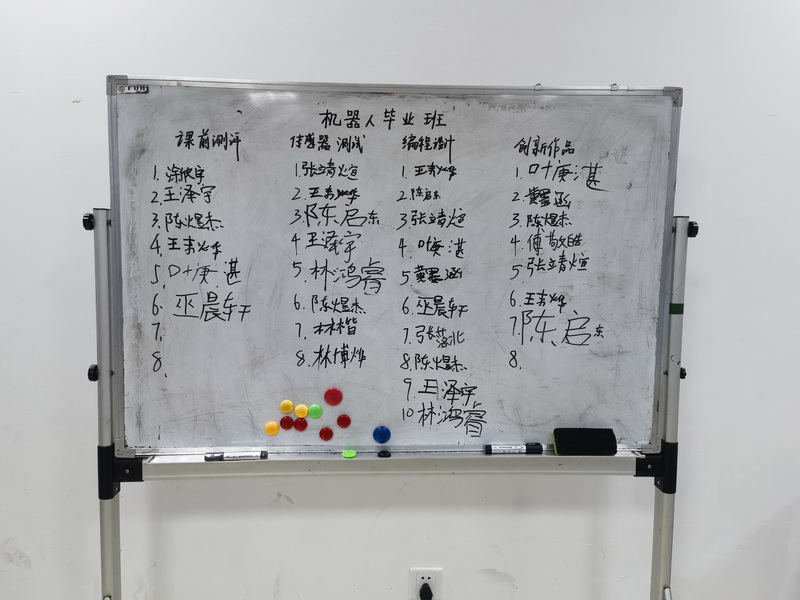 机器人毕业班
课前测评
1. 涂欣宇
2. 王泽宇
3. 陈煜杰
4. 王青烨
5. 叶庚湛
6. 巫晨轩
7.
8.
传感器测试
1. 张靖煊
2. 王青烨
3. 陈启东
4. 王泽宇
5. 林鸿睿
6. 陈煜杰
7. 林楷
8. 林博烨
编程设计
1. 王青烨
2. 陈启东
3. 张靖煊
4. 叶庚湛
5. 黄涵
6. 巫晨轩
7. 张落北
8. 陈煜杰
9. 王泽宇
10 林鸿睿
创新作品
1. 叶庚湛
2. 黄涵
3. 陈煜杰
4. 傅敬皓
5. 张靖煊
6. 王青烨
7. 陈启东
8.